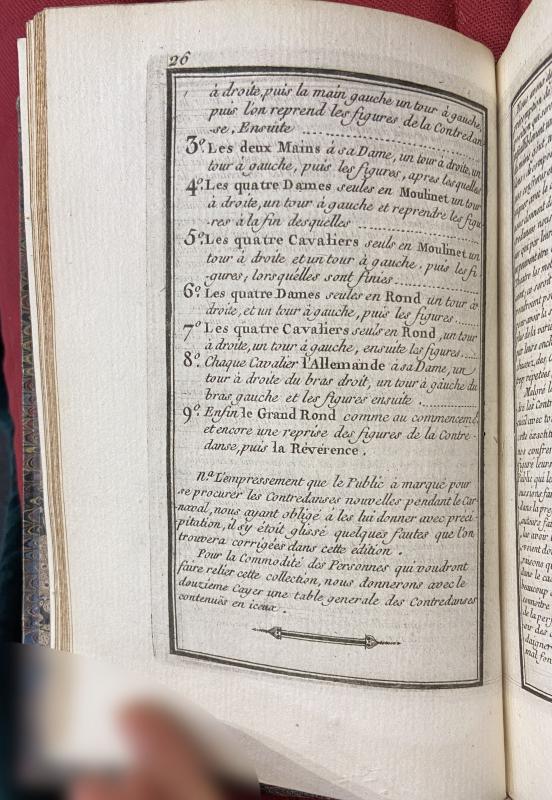 26
à droite, puis la main gauche un tour à gauche,
puis l'on reprend les figures de la Contredan
-se, Ensuite
3.º Les deux Mains à sa Dame, un tour à droite, un
tour à gauche, puis les figures, apres lesquelles
4.º Les quatre Dames seules en Moulinet un tour
à droite, un tour à gauche et reprendre les figu
-res à la fin desquelles
5.º Les quatre Cavaliers seuls en Moulinet un
tour à droite et un tour à gauche, puis les fi
-gures, lorsquelles sont finies
6.º Les quatre Dames seules en Rond un tour à
droite, et un tour à gauche, puis les figures
7.º Les quatre Cavaliers seuls en Rond, un tour
à droite, un tour à gauche, ensuite les figures
8.º Chaque Cavalier l'Allemande à sa Dame, un
tour à droite du bras droit, un tour à gauche du
bras gauche et les figures ensuite
9.º Enfin le Grand Rond comme au commencemẽ.
et encore une reprise des figures de la Contre-
danse, puis la Révérence.
N.ª L'empressement que le Public à marqué pour
se procurer les Contredanses nouvelles pendant le Car
naval, nous ayant obligé à les lui donner avec preci
pitation, il s'y étoit glissé quelques fautes que l'on
trouvera corrigées dans cette édition.
Pour la Commodité des Personnes qui voudront
faire relier cette collection, nous donnerons avec le
douzieme Cayer une table generale des Contredanses
contenües en iceux.